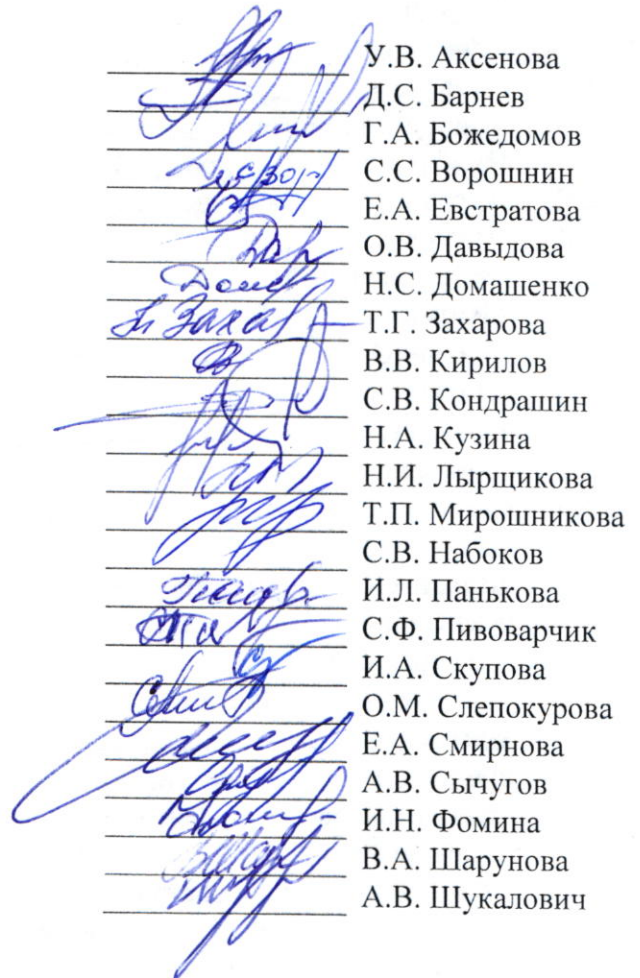 У.В. Аксенова
Д.С. Барнев
Г.А. Божедомов
С.С. Ворошнин
Е.А. Евстратова
О.В. Давыдова
Н.С. Домашенко
Т.Г. Захарова
В.В. Кирилов
С.В. Кондрашин
Н.А. Кузина
Н.И. Лырщикова
Т.П. Мирошникова
С.В. Набоков
И.Л. Панькова
С.Ф. Пивоварчик
И.А. Скупова
О.М. Слепокурова
Е.А. Смирнова
А.В. Сычугов
И.Н. Фомина
В.А. Шарунова
А.В. Шукалович